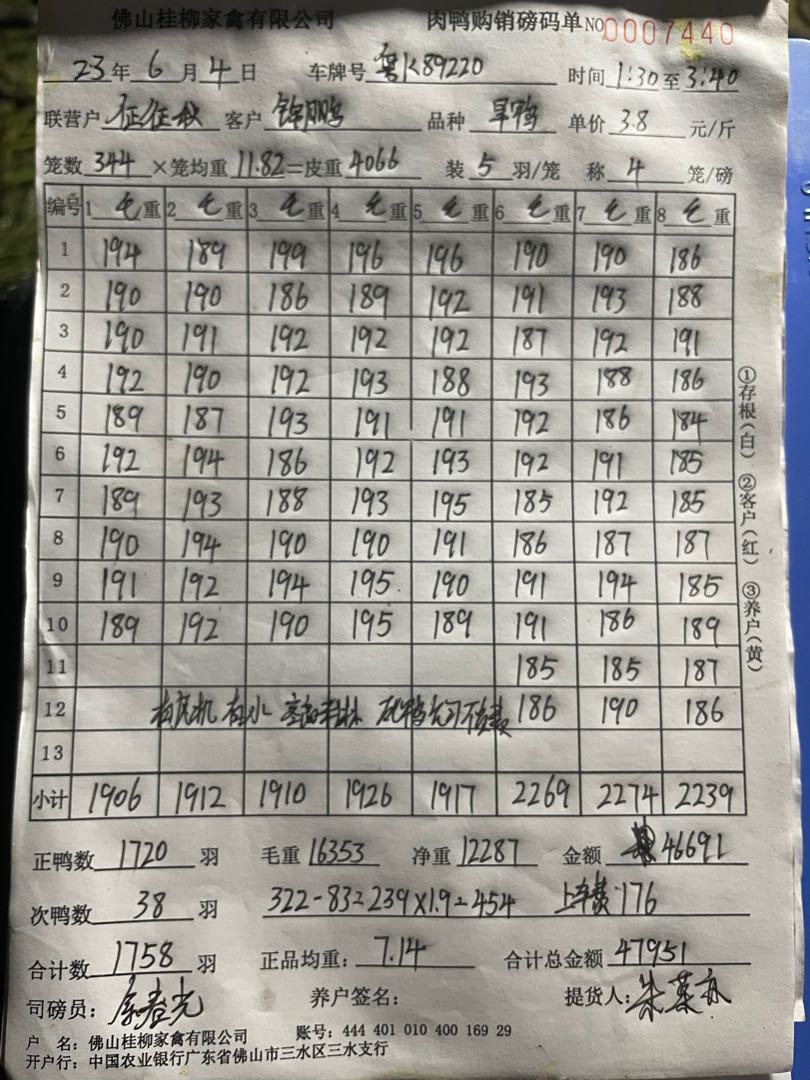 佛山桂柳家禽有限公司 肉鸭购销磅码单 NO 0007440
23年 6月 4日 车牌号 粤K89220 时间 1:30至 3:40
联营户 客户 锦鹏 品种 旱鸭 单价 3.8 元/斤
笼数 344 ×笼均重 11.82=皮重 4066 装 5 羽/笼 称 4 笼/磅
编号 1 毛重 2 毛重 3 毛重 4 毛重 5 毛重 6 毛重 7 毛重 8 毛重
1 194 189 199 196 196 190 190 186
2 190 190 186 189 192 191 193 188
3 190 191 192 192 192 187 192 191
4 192 190 192 193 188 193 188 186
5 189 187 193 191 191 192 186 184
6 192 194 186 192 193 192 191 185
7 189 193 188 193 195 185 192 185
8 190 194 190 190 191 186 187 187
9 191 192 194 195 190 191 194 185
10 189 192 190 195 189 191 186 189
11 185 185 187
12 有水 186 190 186
13
小计 1906 1912 1910 1926 1917 2269 2274 2239
正鸭数 1720 羽 毛重 16353 净重 12287 金额 46691
次鸭数 38 羽 322-83=239×1.9=454 上车费 176
合计数 1758 羽 正品均重: 7.14 合计总金额 47951
司磅员: 养户签名: 提货人:
户 名: 佛山桂柳家禽有限公司 账号: 444 401 010 400 169 29
开户行: 中国农业银行广东省佛山市三水区三水支行
①存根(白) ②客户(红) ③养户(黄)